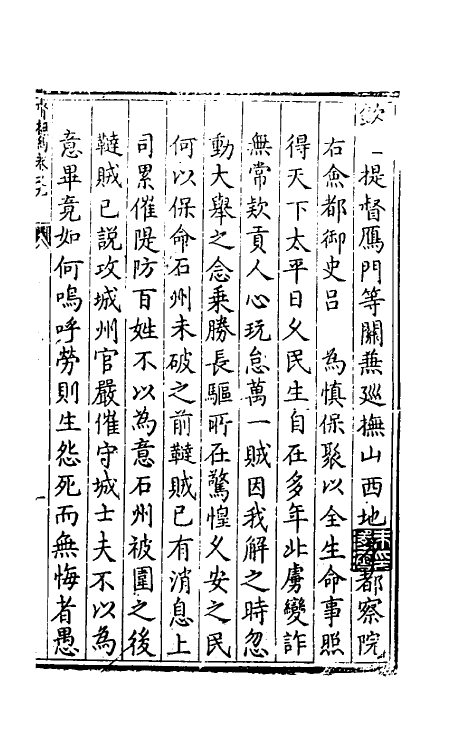 欽一提督鴈門等關兼巡撫山西地方都察院
右僉都御史呂　為慎保聚以全生命事照
得天下太平日久民生自在多年北虜變詐
無常欵貢人心玩怠萬一賊因我解之時忽
動大舉之念乘勝長驅所在驚惶乂安之民
何以保命石州未破之前韃賊已有消息上
司累催隄防百姓不以為意石州被圍之後
韃賊已說攻城州官嚴催守城士夫不以為
意畢竟如何嗚呼勞則生怨死而無悔者愚